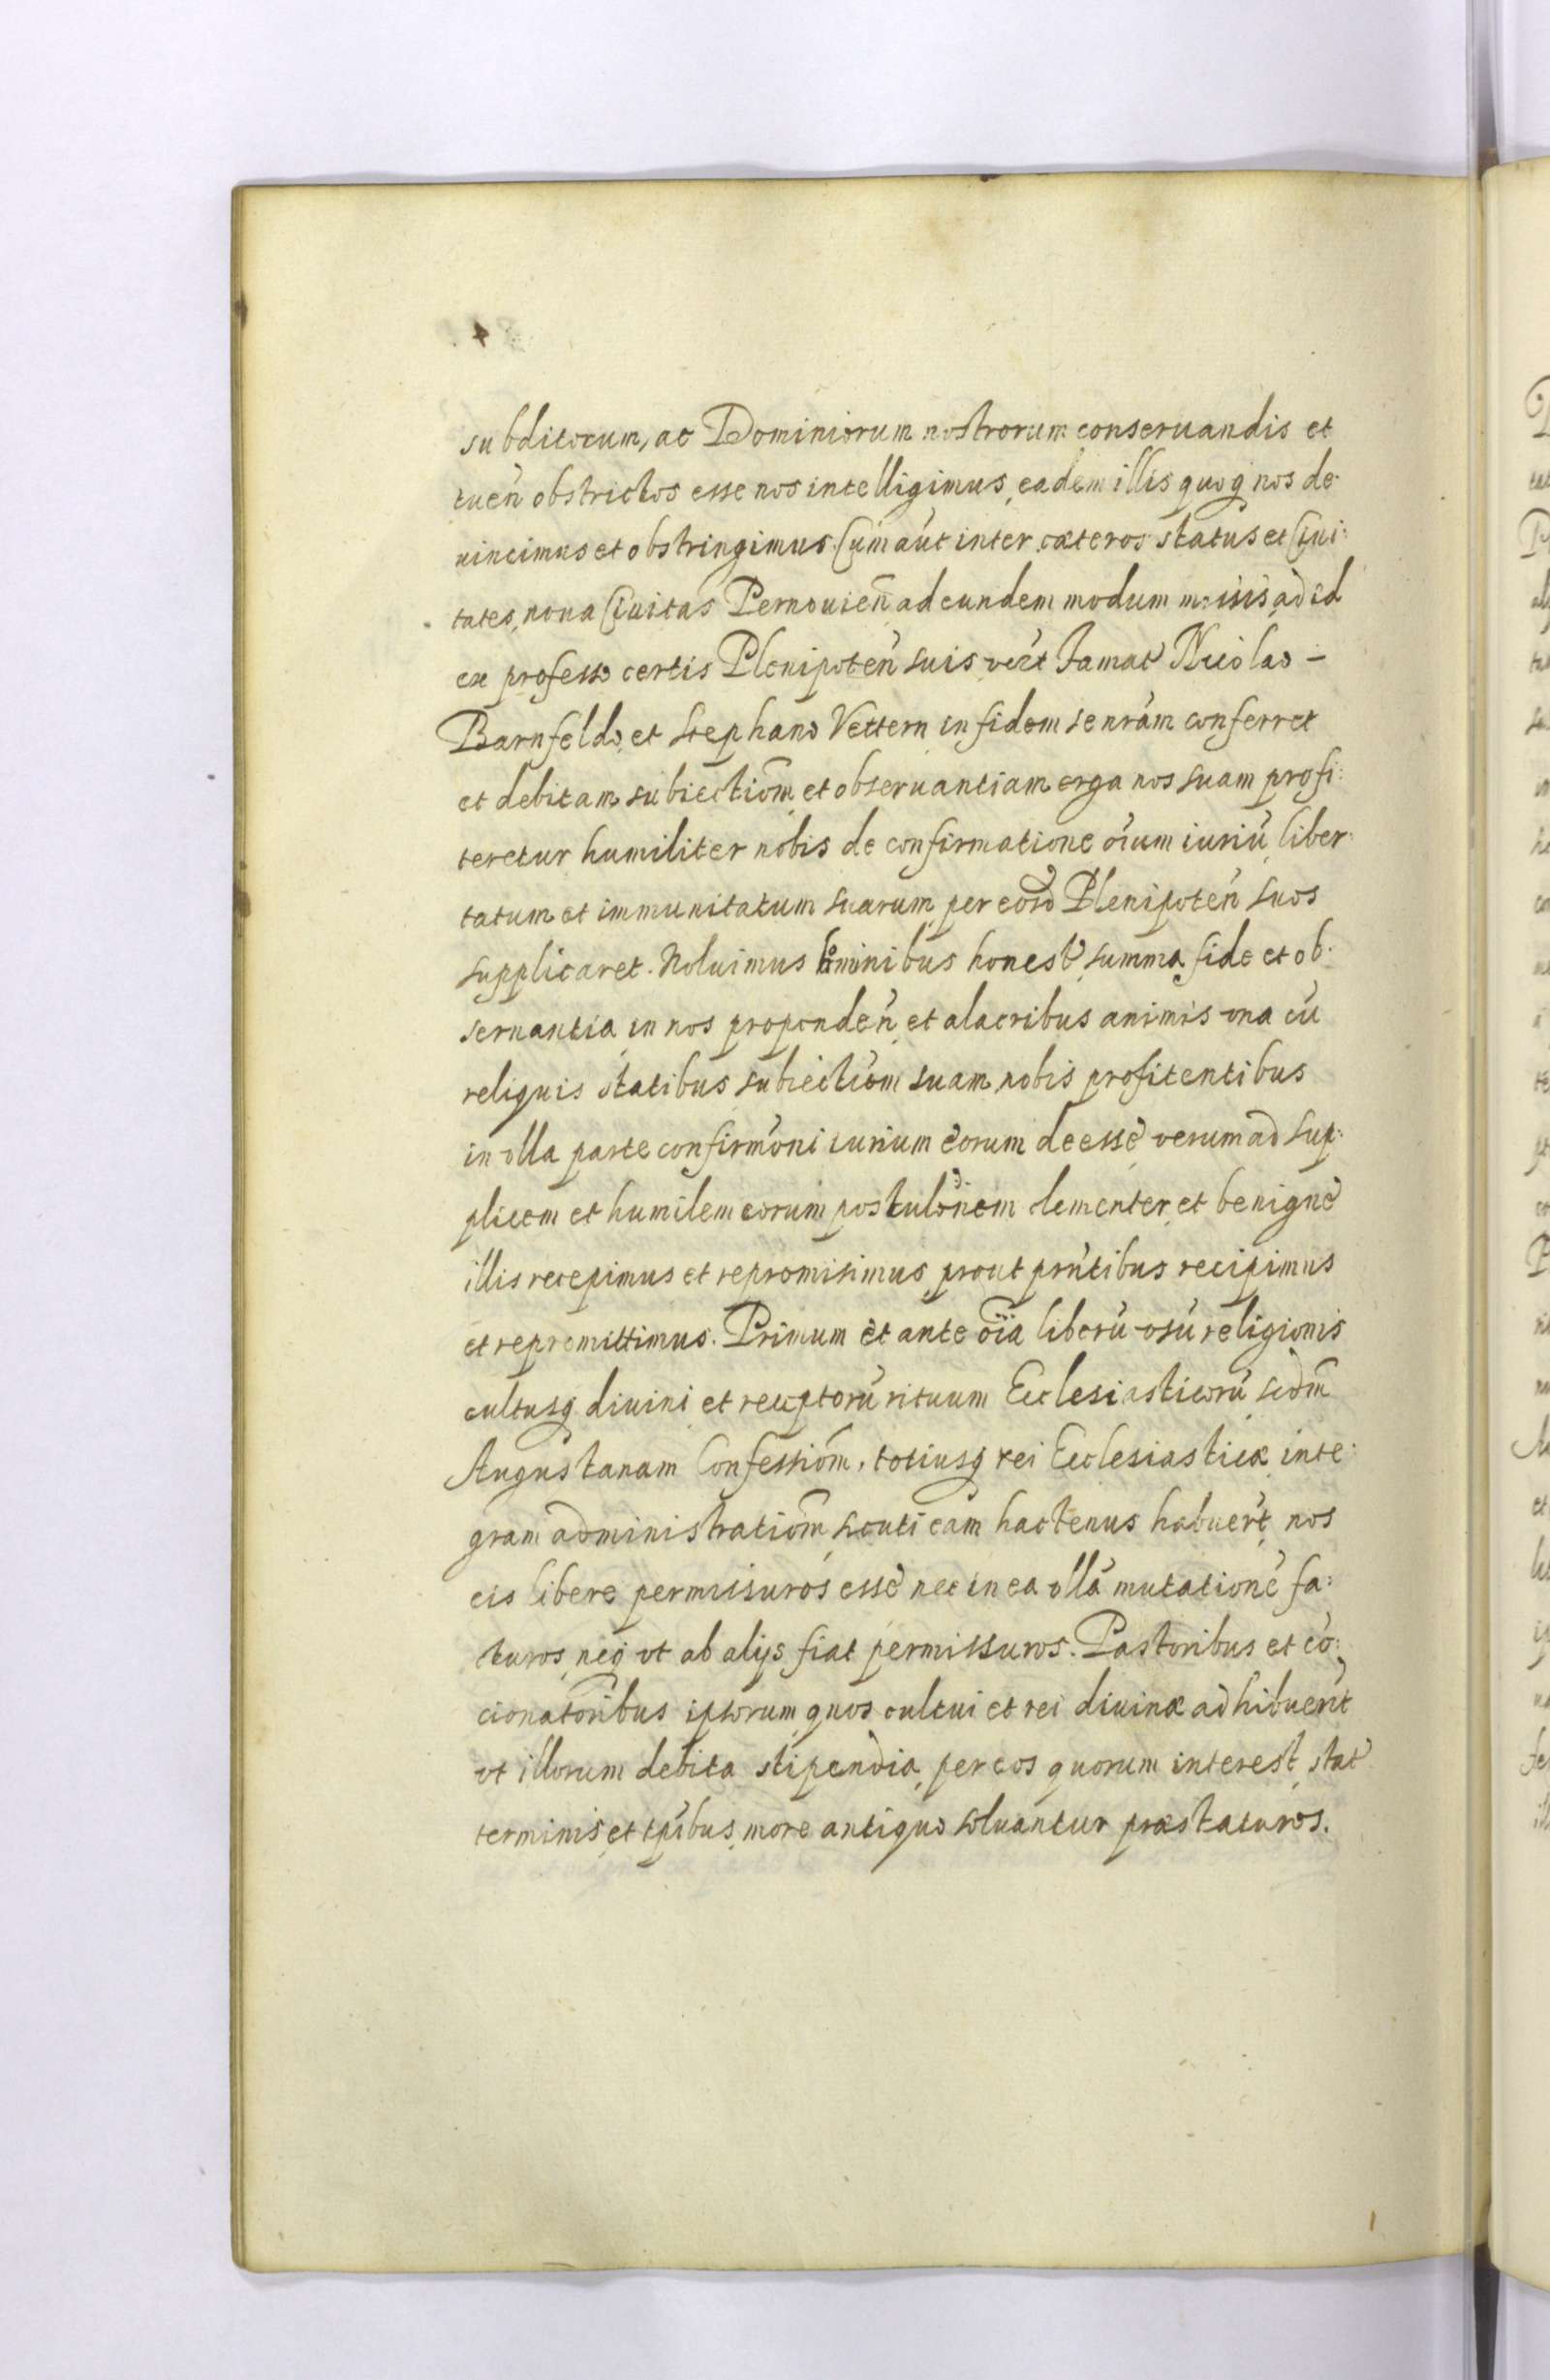 4
subditorum, ac Dominiorum nostrorum conseruandis et
tueñ obstrictos esse nos intelligimus, eadem illis quoq nos de:
uincimus et obstringimus. Cum aút inter cæteros status et Ciui:
tates, noua Ciuitas Pernouieñ ad eundem modum missis ad id
ex professo certis Plenipoteñ suis vezt Famat Nicolao –
Barnfeldo, et Stephano Vettern in fidem se nrãm conferret
et debitam subiectiõm et obseruantiam erga nos suam profi:
teretur humiliter nobis de confirmatione oïum iuriũ liber:
tatum et immunitatum suarum per eosd Plenipoteñ suos
supplicaret. Noluimus hõminibus honest summa fide et ob:
seruantia in nos propendeñ et alacribus animis vna cũ
reliquis statibus subiectiõm suam nobis profitentibus
in vlla parte confirmõni iurium eorum deesse verum ad sup:
plicem et humilem eorum postulõnem clementer et benigne
illis recepimus et repromisimus prout prñtibus recipimus
et repromittimus. Primum et ante õïa liberũ vsũ religionis
cultusq diuini et receptorũ rituum Ecclesiasticorũ scdm̃
Augustanam Confessiõm, totiusq rei Ecclesiasticæ inte:
gram administratiõm sicuti eam hactenus habuert nos
eis libere permissuros esse nec in ea vllã mutationẽ fa:
cturos, neq vt ab alijs fiat permissuros. Pastoribus et cõ:
cionatoribus ipsorum quos cultui et rei diuinæ adhibuerit
vt illorum debita stipendia per eos quorum interest, stat
terminis et tp̃ibus more antiquo soluantur præstaturos.